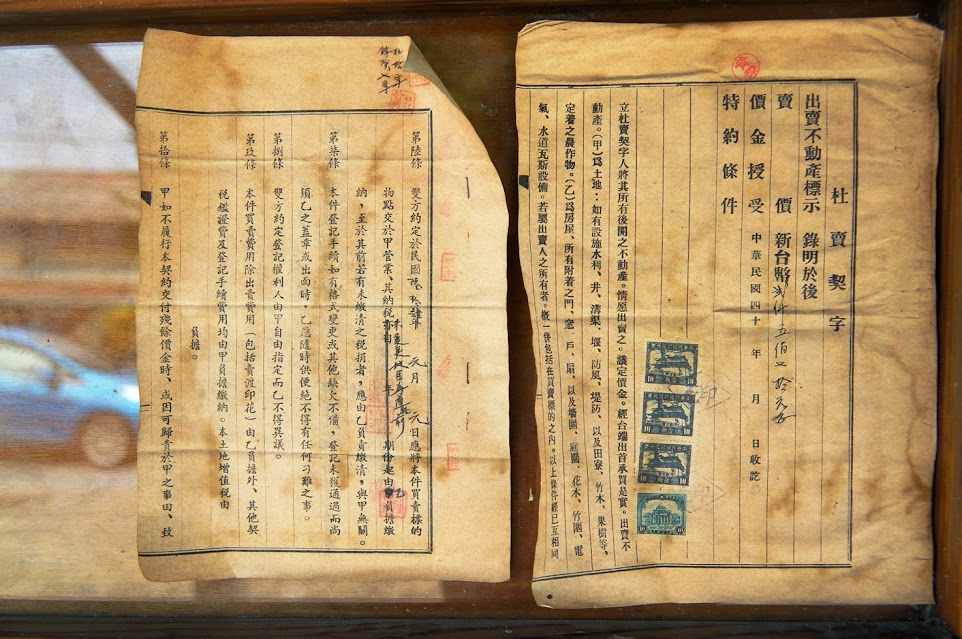 杜賣契字
出賣不動產標示 錄明於後
賣價 新台幣 仟五佰 拾元
價金授受 中華民國四十 年 月 日收訖
特約條件
立杜賣契字人將其所有後開之不動產。情愿出賣之。議定價金。經台端出首承買是實。出賣不
動產。(甲)爲土地:如有設施水利、井、溝渠、堰、防風、堤防、以及田寮、竹木、果樹等、
定着之農作物。(乙)爲房屋、所有附着之門、窓、戶、扇、以及墻圍、庭園、花木、竹圍、電
氣、水道瓦斯設備。若屬出賣人之所有者。概一併包括在買賣標的之內。以上條件經已互相同
10
10
10
10 10
第陸條 雙方約定於民國 年 元月 元日應將本件買賣標的
物點交於甲管業、其納稅 年 期份起由乙負擔繳
納，至於其前若有未繳清之稅捐者，應由乙負責繳清，與甲無關。
第柒條 本件登記手續如有格式變更或其他缺欠不備，登記未獲通過而尚
須乙之蓋章或出面時，乙應隨時供便絕不得有任何刁難之事。
第捌條 雙方約定登記權利人由甲自由指定而乙不得異議。
第玖條 本件買賣費用除出賣費用（包括賣渡印花）由乙負擔外、其他契
稅鑑證費及登記手續費用均由甲負擔繳納。本土地增值稅由
負擔。
第拾條 甲如不履行本契約交付殘餘價金時、或因可歸責於甲之事由、致